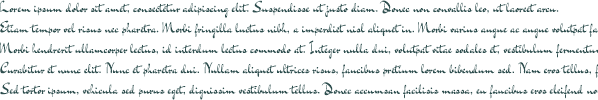 Lorem ipsum dolor sit amet, consectetur adipiscing elit. Suspendisse ut justo diam. Donec non convallis leo, ut laoreet arcu.
Etiam tempor vel risus nec pharetra. Morbi fringilla luctus nibh, a imperdiet nisl aliquet in. Morbi varius augue ac augue volutpat fa
Morbi hendrerit ullamcorper lectus, id interdum lectus commodo at. Integer nulla dui, volutpat vitae sodales et, vestibulum fermentum
Curabitur et nunc elit. Nunc et pharetra dui. Nullam aliquet ultrices risus, faucibus pretium lorem bibendum sed. Nam eros tellus, f
Sed tortor ipsum, vehicula sed purus eget, dignissim vestibulum tellus. Donec accumsan facilisis massa, eu faucibus eros eleifend no